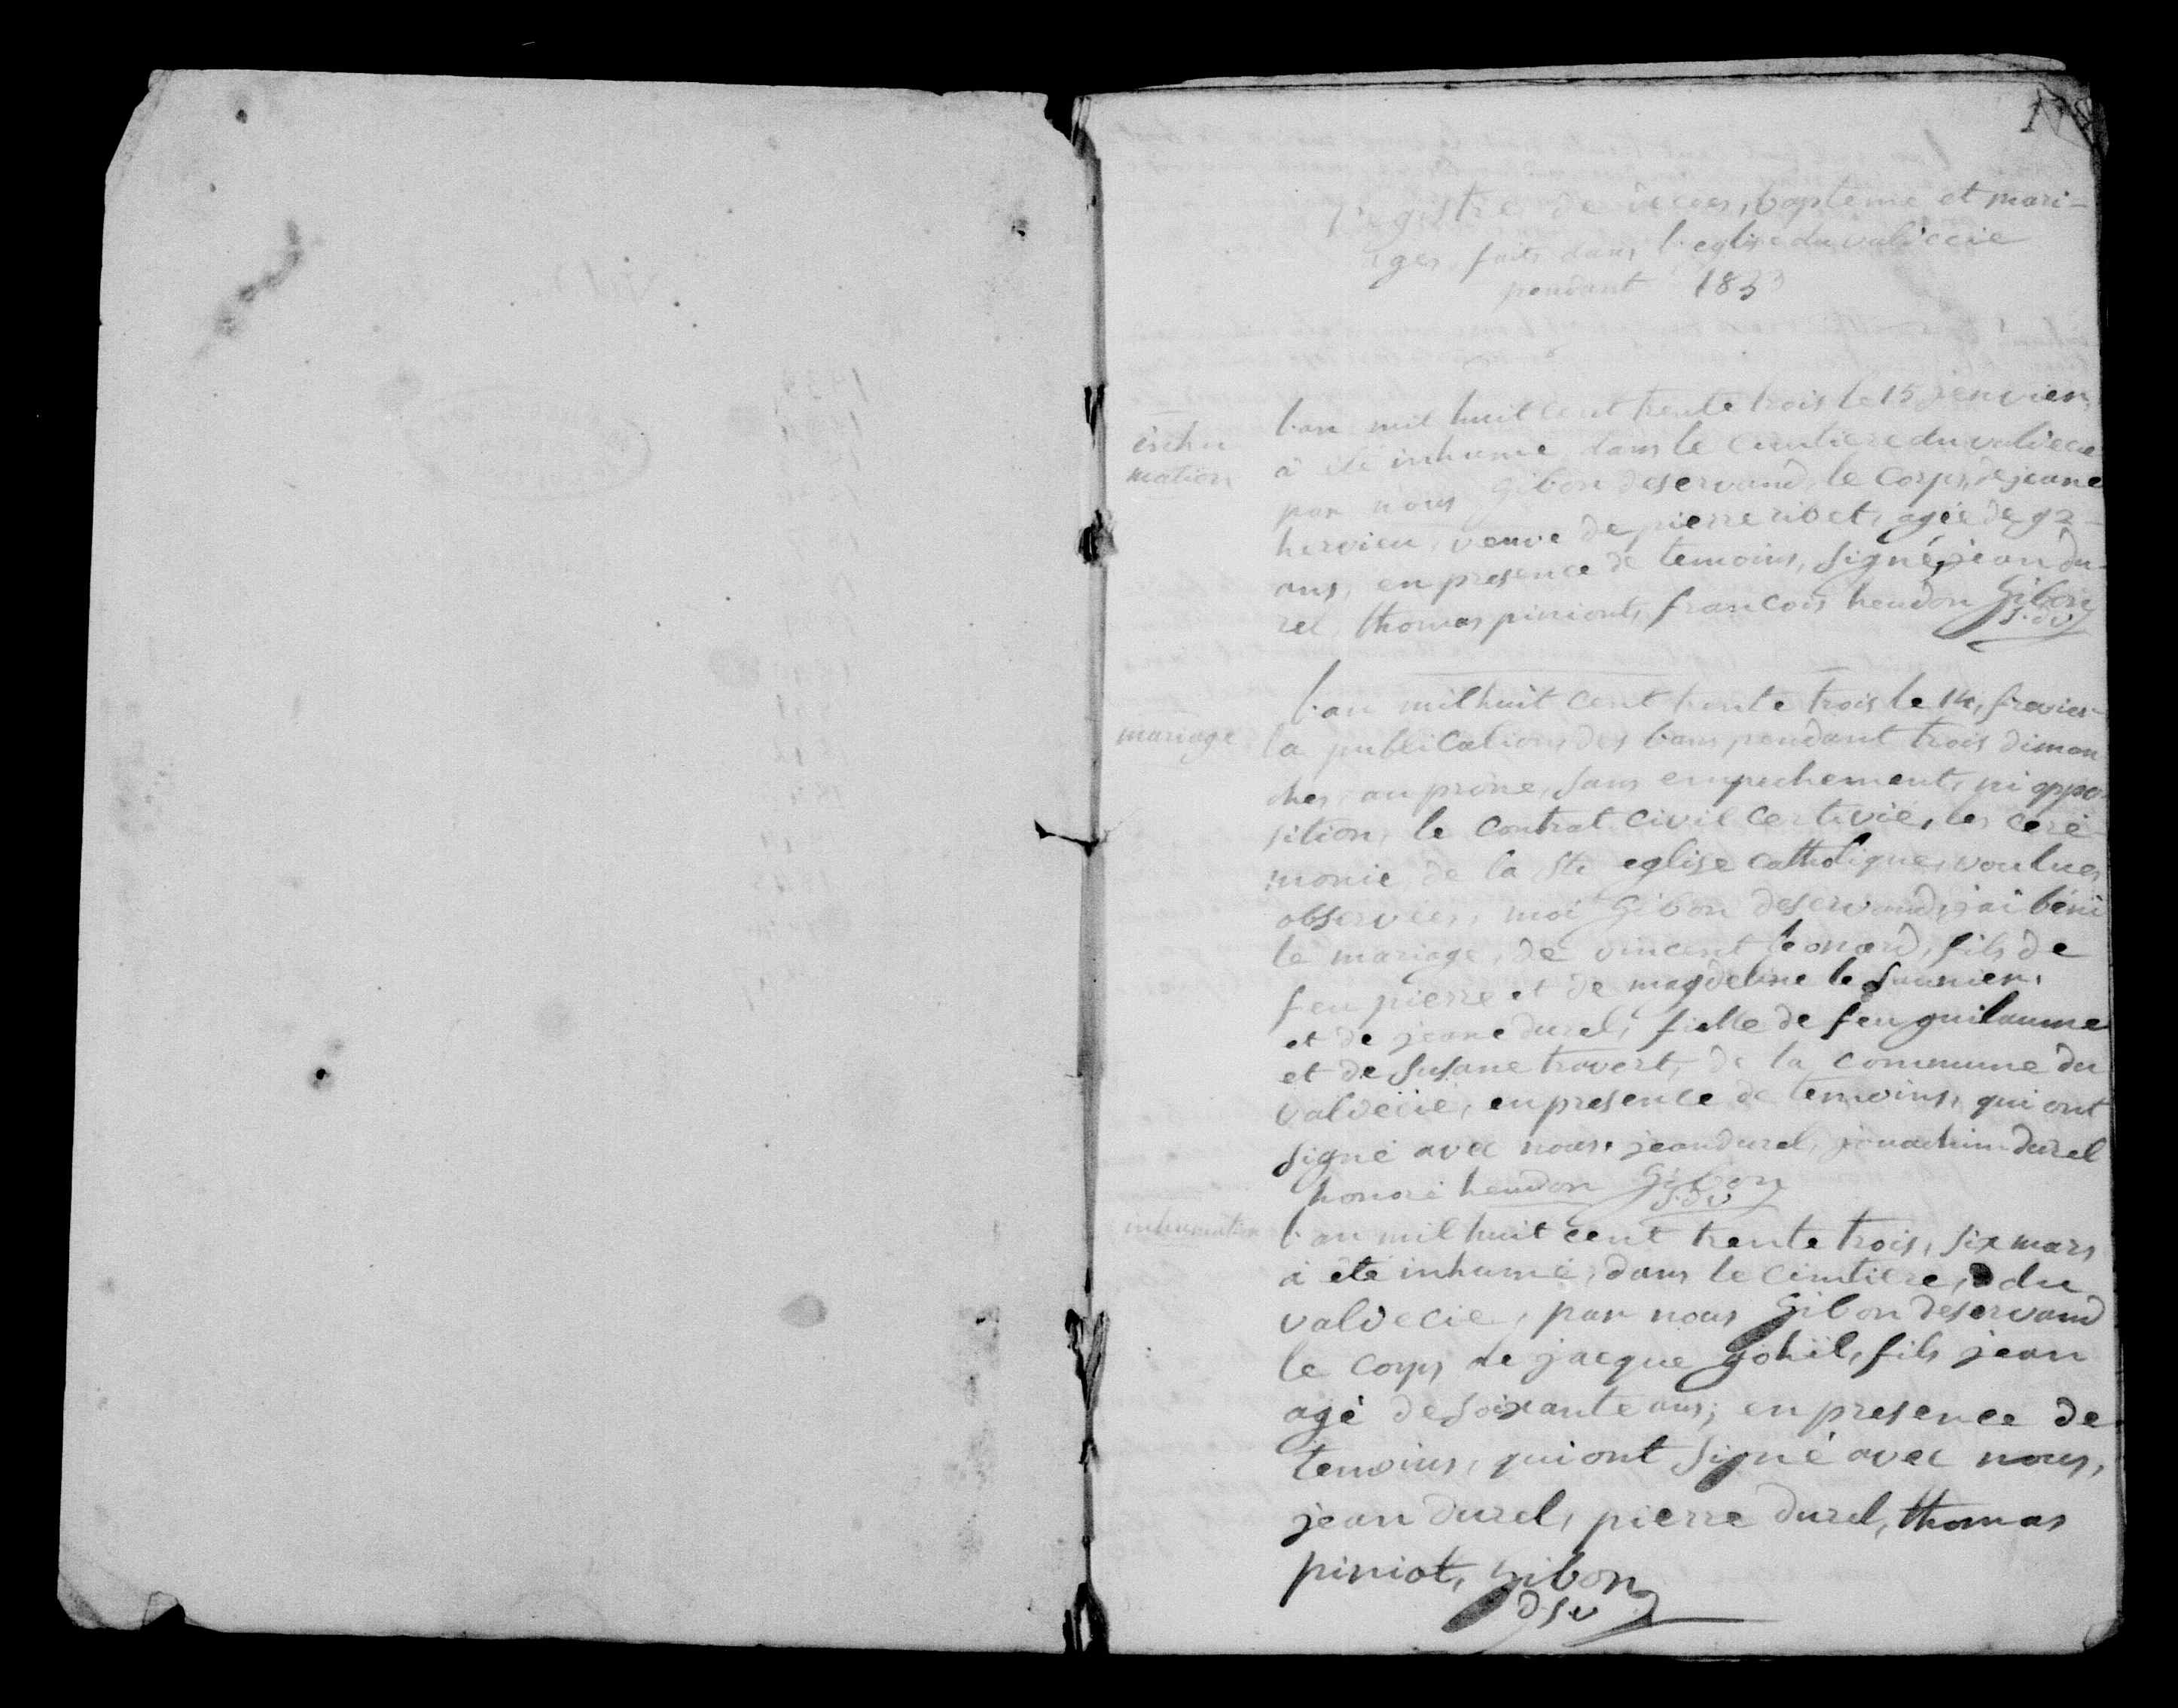 Registre de deces, bapteme et mari-
ages faits dans l'eglise du valdecie
pendant 1833
inhu
mation
l'an mil huit cent trente trois le 15 jenvier,
a été inhumé dans le cimtiere du valdecie
par nous Gibon deservand, le corps de jeane
hervieu, veuve de pierre rivet, agée de 92
ans, en presence de temoins, signé, jean du-
rel, thomas piniont, francois heudon Gibon
mariage
l'an mil huit cent trente trois le 14, fevrier
la publications des bans pendant trois diman
ches, au prone, sans empechement, ni oppo-
sition, le contrat civil certivié, les ceré-
monie de la ste eglise catholique, voulues
observées, moi Gibon deservand, j'ai béni
le mariage, de vincent leonard, fils de
feu pierre et de magdeleine le saunier,
et de jeane durel, fielle de feu guilaume
et de susane travert, de la commune du
valdécie, en presence de temoins, qui ont
signé avec nous. jean durel, jouachim durel
honoré heudon Gibon
inhumation
l'an mil huit cent trente trois, six mars
a eté inhumé, dans le cimtiere, du
valdecie, par nous Gibon deservand
le corps de jacque gohil, fils jean
agé de soixante ans; en presence de
temoins, qui ont signé avec nous,
jean durel, pierre durel, thomas
piniot, Gibon
dsv